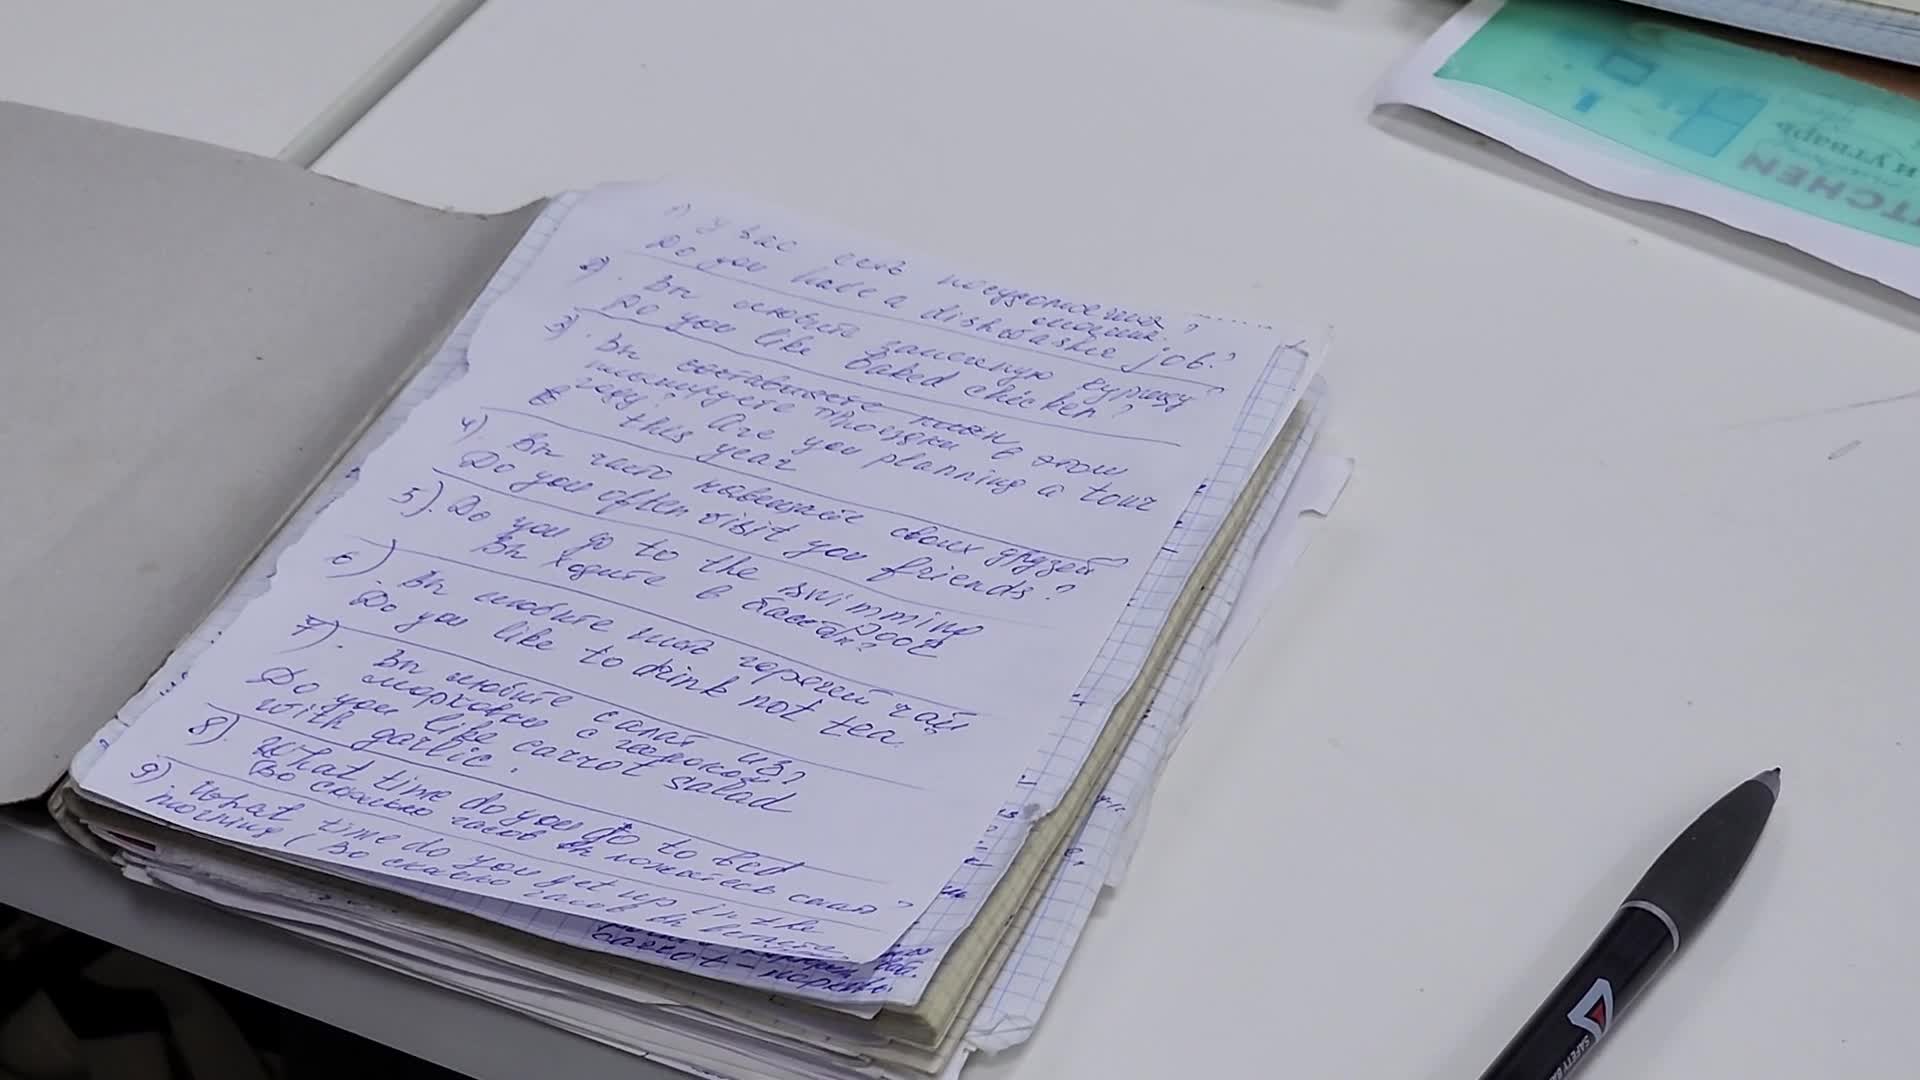 1) У вас есть посудомоечная
машина?
Do you have a dishwasher job?
2). Вы любите запечную курицу?
Do you like baked chicken?
3). Вы составляете план
планируете поездки в этом
году? Are you planning a tour
this year
4). Вы часто навещаете своих друзей?
Do you often visit you friends?
5). Do you go to the swimming
pool
Вы ходите в бассейн?
6) Вы любите горячей чай
Do you like to drink not tea.
7). Вы любите салат из
морковки с чесноком?
Do you like carrot salad
with garlic.
8). What time do you go to bed
Во сколько часов вы ложитесь спать?
9) What time do you get up in the
morning (Во сколько часов вы
carrot - морковь
KITCHEN
и утварь
SAFETY